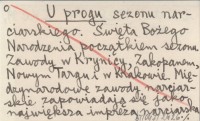 U progu sezonu nar-
ciarskiego. Święta Bożego
Narodzenia początkiem sezonu
Zawody w Krynicy, Zakopanem,
Nowym Targu i w Krakowie. Mię-
dzynarodowe zawody narciar-
skie zapowiadają się jako
największa impreza narciarska